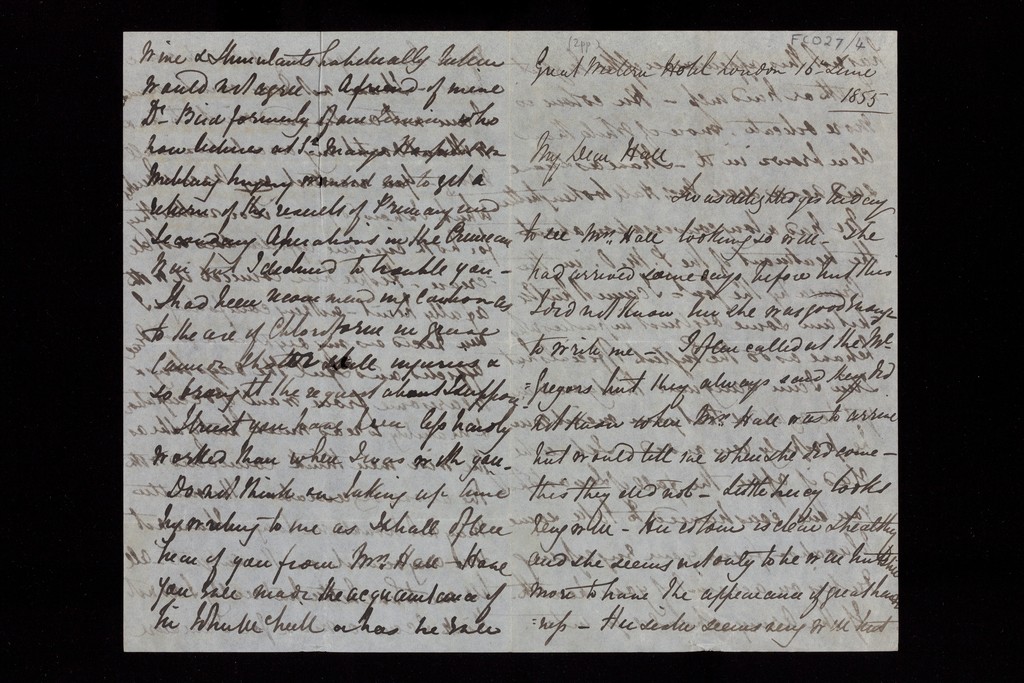 (2pp)
FCO27/4
Great Western Hotel London 16th June
1855
My Dear Hall
I was delighted yesterday
to see Mrs. Hall looking so well - She
had arrived some days before but this
I did not know till she was good enough
to write me - I often called at the Mc
Gregors but they always said they did
not know when Mrs. Hall was to arrive
but would tell me when she did come -
this they did not - Little Lucy looks
very well - Her colour is clear & healthy
and she seems not only to be well but
more to have the appearance of great
=ness - Her sister seems very well but
Wine & Stimulants habitually taken
would not agree - A friend of mine
Dr. Bird formerly of our Service who
now lectures at St. Marys Hospital on
Military Surgery wanted me to get a
return of the results of Primary and
Secondary Operations in the Crimean
War but I declined to trouble you -
I had been recommending caution as
to the use of Chloroform in grave
cases & shot or shell injuries &
so brought the request about I suppose
I trust you have been less hardly
worked than when I was with you -
Do not think on taking up time
by writing to me as I shall often
hear of you from Mrs. Hall - Have
you ever made the acquaintance of
or has he ever